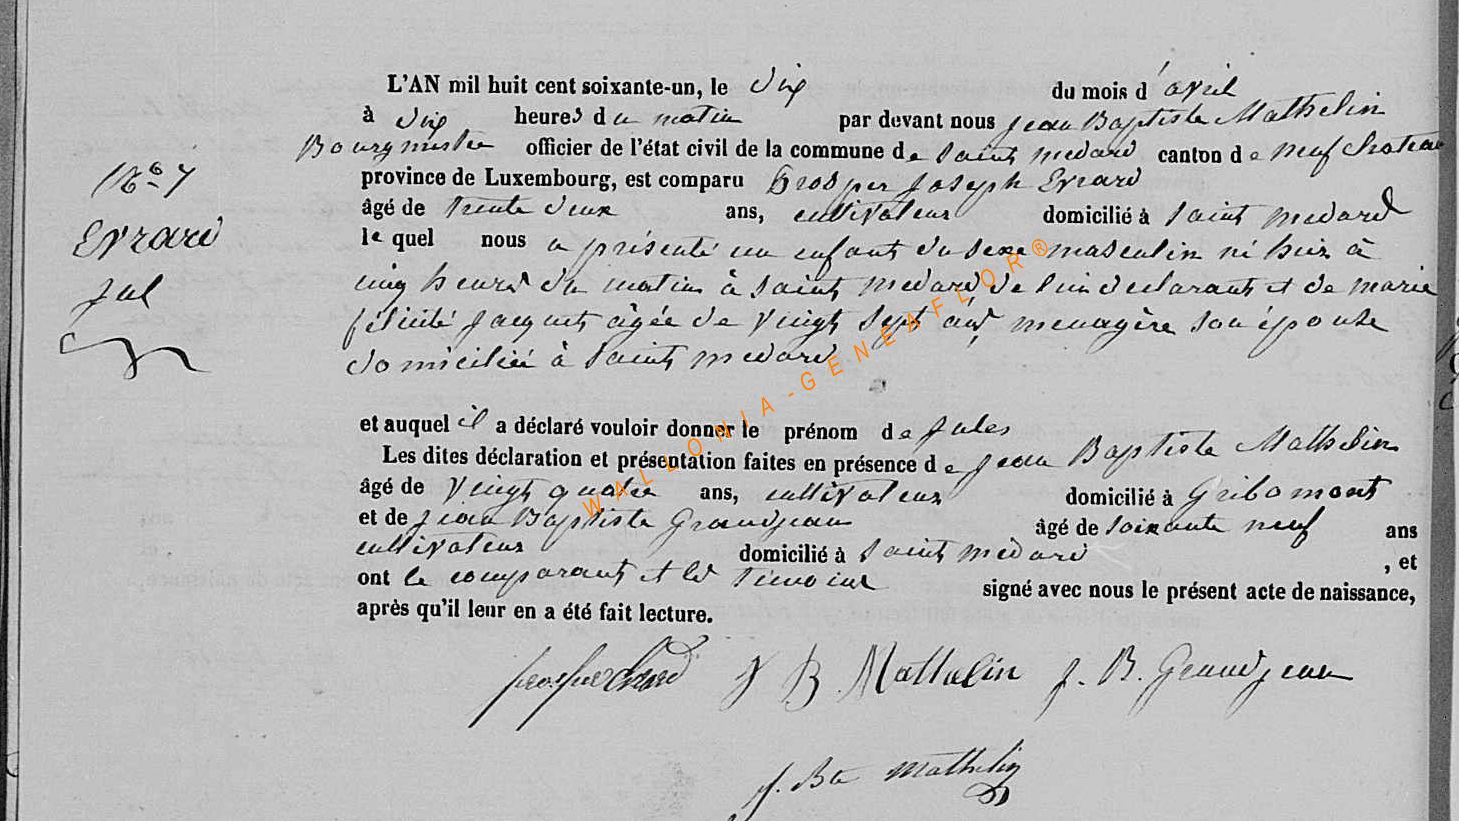 L'AN mil huit cent soixante-un, le dix du mois d'avril
à dix heures du matin par devant nous Jean Baptiste Mathelin
Bourgmestre officier de l'état civil de la commune de Saint medard canton de Neufchateau
province de Luxembourg, est comparu Prosper Joseph Evrard
âgé de trente deux ans, cultivateur domicilié à Saint medard
lequel nous a présenté un enfant du sexe masculin né hier à
cinq heures du matin à Saint medard de lui declarant et de marie
félicité Jacquet âgée de vingt sept ans menagère son épouse
domiciliée à Saint medard
et auquel il a déclaré vouloir donner le prénom de Jules
Les dites déclaration et présentation faites en présence de Jean Baptiste Mathelin
âgé de vingt quatre ans, cultivateur domicilié à Gribomont
et de Jean Baptiste Grandjean âgé de soixante neuf ans
cultivateur domicilié à Saint medard, et
ont le comparant et les témoins signé avec nous le présent acte de naissance,
après qu'il leur en a été fait lecture.
N° 7
Evrard
Jul
prosper Evrard J B Mathelin J. B. Grandjean
J. Bte Mathelin
WALLONIA-GENEAFLOR®